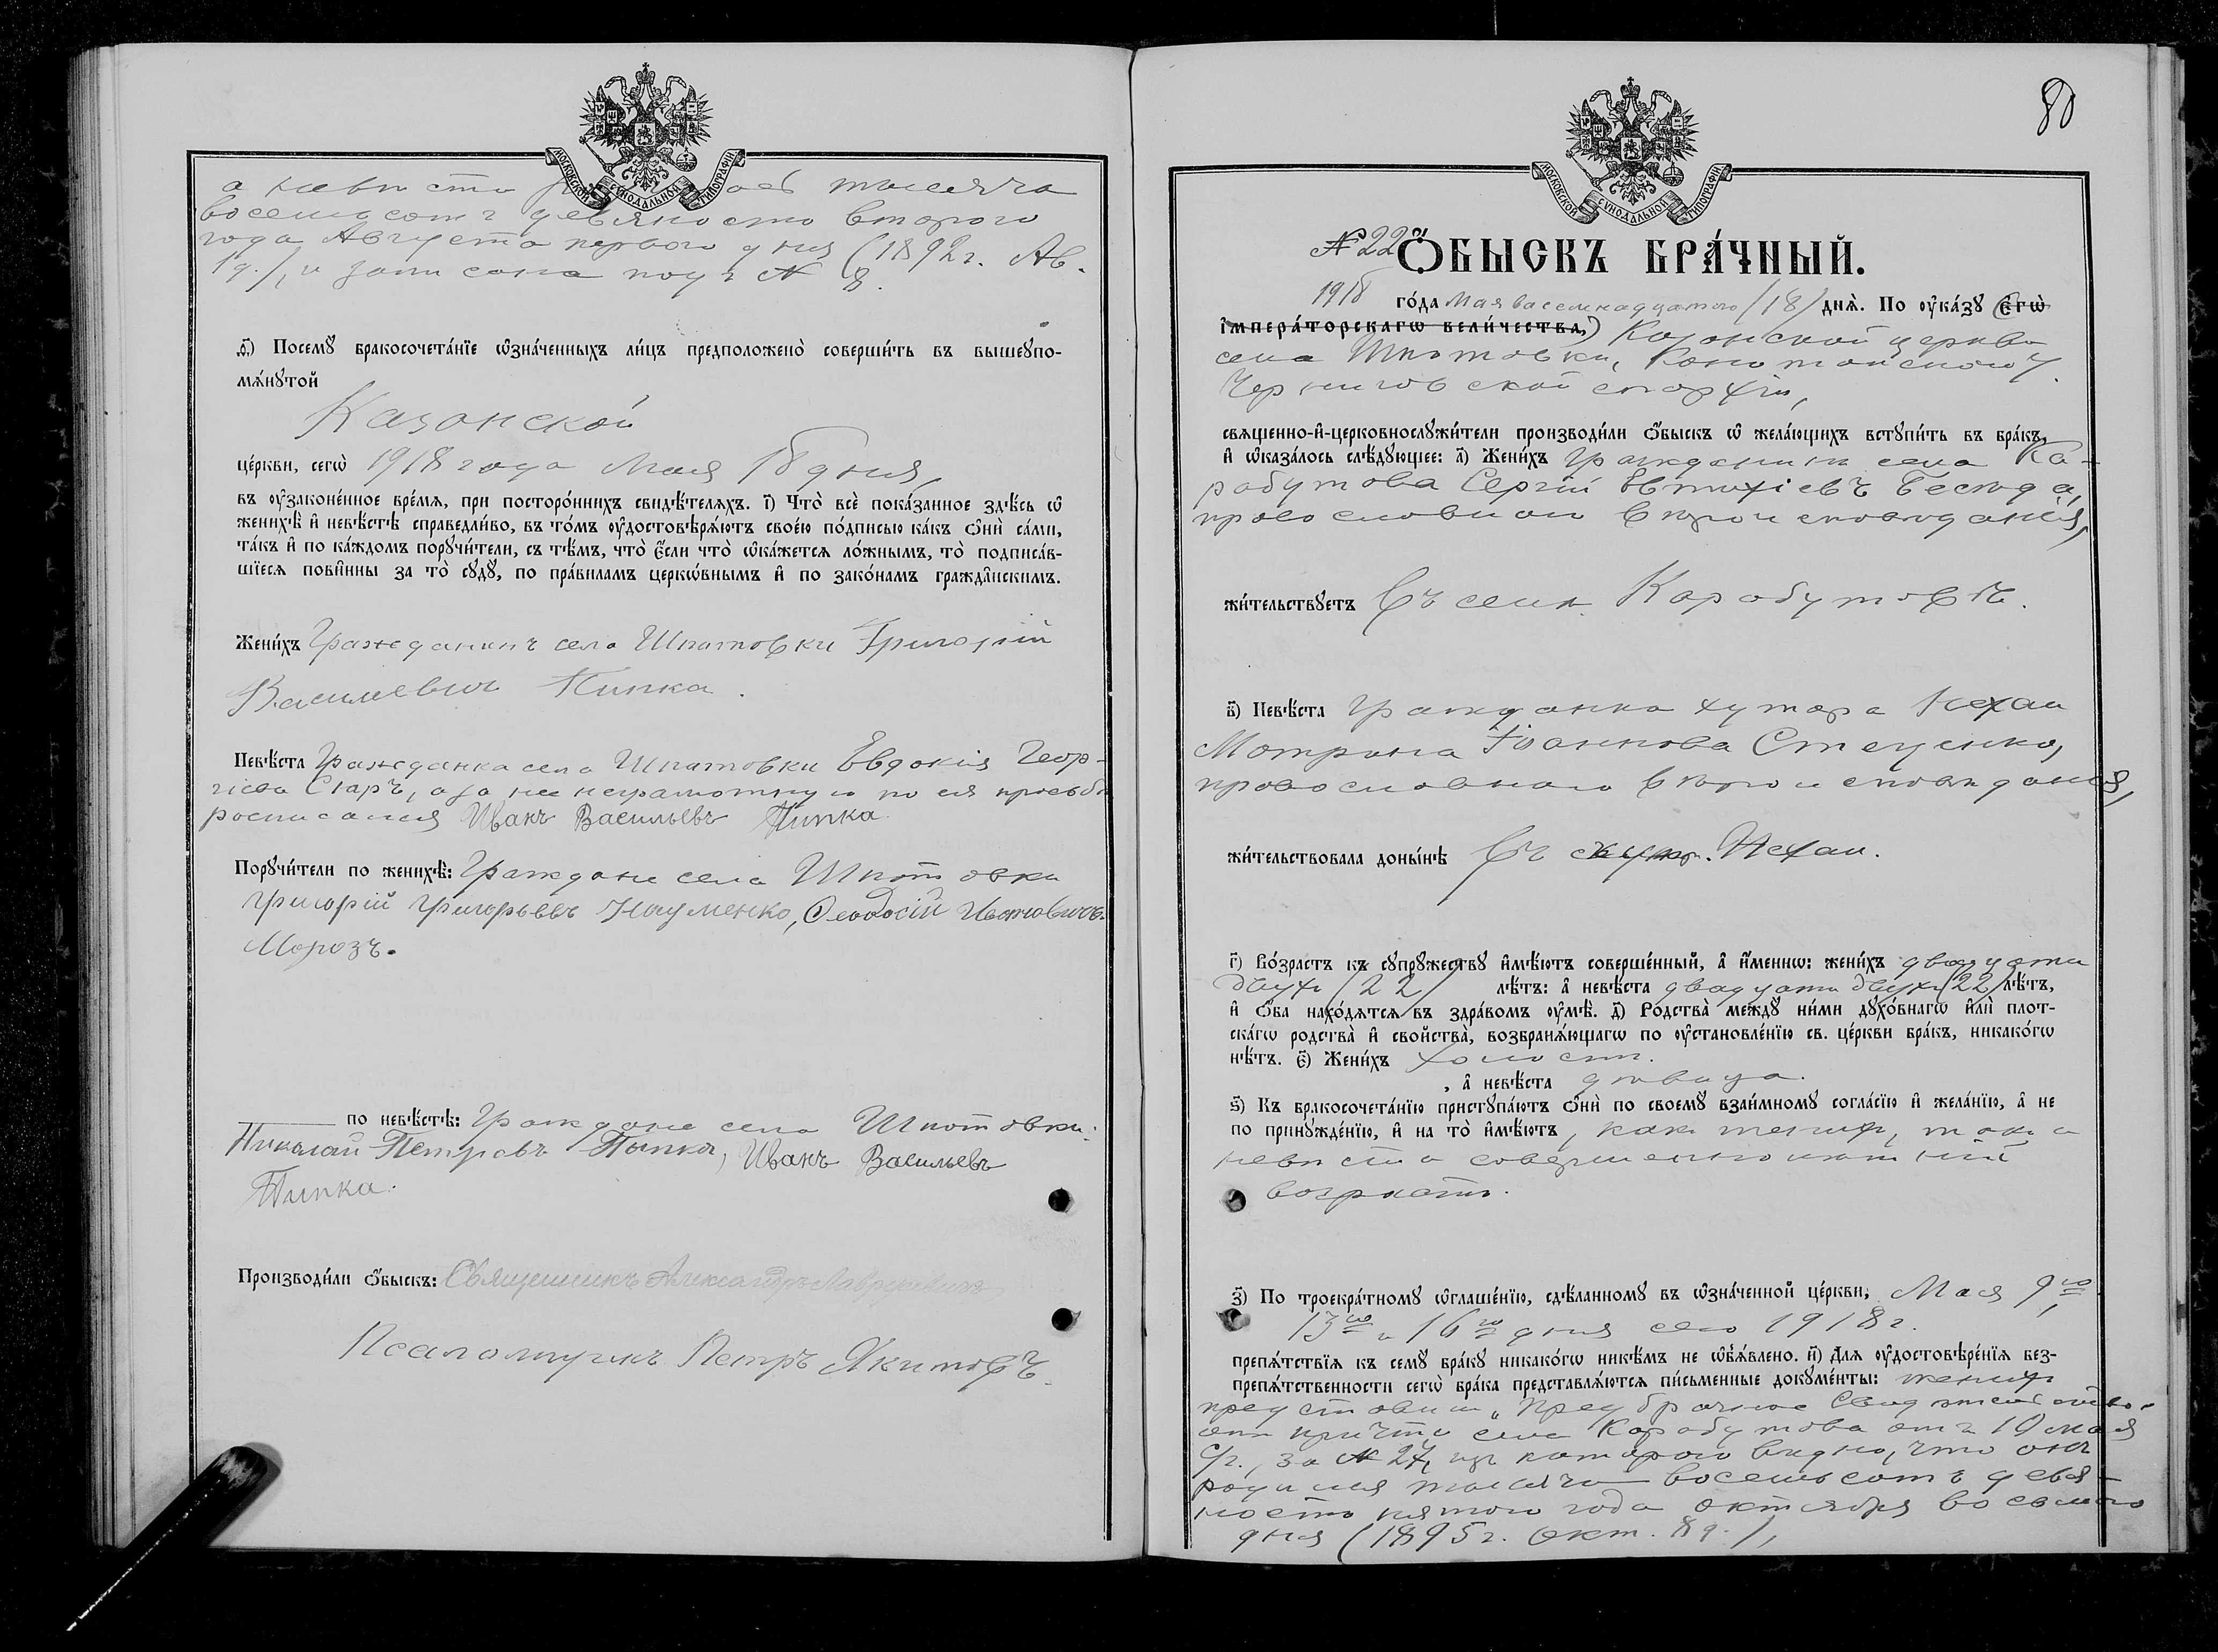 МОСКОВСКОЙ СУНОДАЛЬНОЙ ТИПОГРАФІИ.
а невѣста тысяча
восемьсотъ девяносто второго
года Августа перваго дня (1892 г. Ав.
1 д.), и записана подъ № 8.
д҃і) Посемꙋ̀ бракосочета́нїе ѡ҆зна́ченныхъ ли́цъ предположено̀ соверши́ть въ вышеупо-
мѧ́нꙋтой
Казанской
це́ркви, сегѡ̀ 1918 года Мая 18 дня,
въ ᲂу҆законе́нное вре́мѧ, при посторо́ннихъ свидѣ́телѧхъ. і҃) Что̀ всѐ пока́занное здѣ́сь ѡ҆
женихѣ̀ и҆ невѣ́стѣ справедли́во, въ то́мъ ᲂу҆достовѣрѧ́ютъ свое́ю по́дписью ка́къ ѻ҆нѝ са́ми,
та́къ и҆ по ка́ждомъ порꙋчи́тели, съ тѣ́мъ, что̀ є҆́сли что̀ ѡ҆ка́жетсѧ ло́жнымъ, то̀ подписа́в-
шїесѧ пови́нны за то̀ сꙋдꙋ̀, по пра́виламъ церкѡ́внымъ и҆ по зако́намъ гражда́нскимъ.
Жени́хъ Гражданинъ села Шпотовки Григорій
Василіевъ Пипка.
Невѣ́ста Гражданка села Шпотовки Евдокія Геор-
гіева Сnаръ, а за нее неграмотную по ея просьбѣ
росписался Иванъ Васильевъ Пипка
Порꙋчи́тели по женихѣ̀: Граждане села Шпотовки
Григорій Григорьевъ Науменко, Ѳеодосій Ивановичъ
Морозъ.
по невѣ́стѣ: Граждане села Шпотовки:
Николай Петровъ Пипка, Иванъ Васильевъ
Пипка.
Производи́ли ѻ҆́быскъ: Священникъ Александръ
Псаломщикъ Петръ Якимовъ.
80
МОСКОВСКОЙ СУНОДАЛЬНОЙ ТИПОГРАФІИ.
№ 22 Ѻ҆́БЫСКЪ БРА́ЧНЫЙ.
1918 го́да Мая восемнадцатого /18/ днѧ̀. По ᲂу҆ка́зꙋ (Є҆гѡ̀
І҆мпера́торскагѡ вели́чества,) Казанской церкви
села Шпотовки, Конотопского у.
Черниговской епархіи,
свѧще́нно-и҆-церковнослꙋжи́тели производи́ли ѻ҆́быскъ ѡ҆ жела́ющихъ встꙋпи́ть въ бра́къ,
и҆ ѡ҆каза́лось слѣ́дꙋющее: а҃) Жени́хъ гражданинъ села Ка-
рабутова Сергій Евтихіевъ Беседа,
православнаго вѣроисповѣданія,
жи́тельствꙋетъ въ селѣ Карабутовѣ.
в҃) Невѣ́ста гражданка хутора Нехаи
Матрона Іоаннова Стеценко,
православнаго вѣроисповѣданія,
жи́тельствовала доны́нѣ въ хутор. Нехаи.
г҃) Во́зрастъ къ сꙋпрꙋ́жествꙋ и҆мѣ́ютъ соверше́нный, а҆ и҆́меннѡ: жени́хъ двадцати
двухъ /22/ лѣ́тъ: а҆ невѣ́ста двадцати двухъ /22/ лѣ́тъ,
и҆ ѻ҆́ба нахо́дѧтсѧ въ здра́вомъ ᲂу҆мѣ̀. д҃) Родства̀ междꙋ̀ ни́ми дꙋхо́внагѡ и҆лѝ плот-
ска́гѡ родства̀ и҆ свойства̀, возбранѧ́ющагѡ по ᲂу҆становле́нїю св. це́ркви бра́къ, никако́гѡ
нѣ́тъ. є҃) Жени́хъ холостъ.
, а҆ невѣ́ста дѣвица.
ѕ҃) Къ бракосочета́нїю пристꙋпа́ютъ ѻ҆нѝ по своемꙋ̀ взаи́мномꙋ согла́сїю и҆ жела́нїю, а҆ не
по принꙋжде́нїю, и҆ на то̀ и҆мѣ́ютъ, какъ женихъ, такъ и
невѣста совершеннолѣтній
возрастъ.
з҃) По троекра́тномꙋ ѡ҆глаше́нїю, сдѣ́ланномꙋ въ ѡ҆зна́ченной це́ркви, Мая 9го,
13го и 16го дня сего 1918 г.
препѧ́тствїѧ къ семꙋ̀ бра́кꙋ никако́гѡ никѣ́мъ не ѡ҆б̾ѧ́влено. и҃) Длѧ ᲂу҆достовѣре́нїѧ без-
препѧ́тственности сегѡ̀ бра́ка представлѧ́ютсѧ пи́сьменные докꙋме́нты: женихъ
представилъ „Предбрачное Свидѣтельство"
отъ причта села Карабутова отъ 10 мая
с/г., за № 27, изъ котораго видно, что онъ
родился тысяча восемьсотъ девя-
носто пятого года октября восьмого
дня (1895 г. окт. 8 д.),